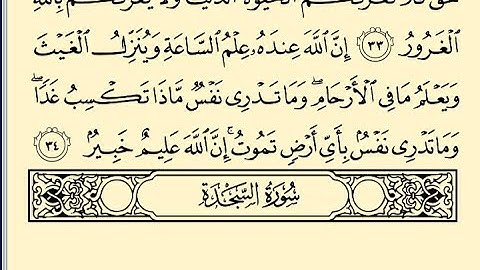 حَقٌّ فَلَا تَغُرَّنَّكُمُ ٱلْحَيَوٰةُ ٱلدُّنْيَا وَلَا يَغُرَّنَّكُم بِٱللَّهِ
ٱلْغَرُورُ ٣٣ إِنَّ ٱللَّهَ عِندَهُۥ عِلْمُ ٱلسَّاعَةِ وَيُنَزِّلُ ٱلْغَيْثَ
وَيَعْلَمُ مَا فِى ٱلْأَرْحَامِ ۖ وَمَا تَدْرِى نَفْسٌ مَّاذَا تَكْسِبُ غَدًا ۖ
وَمَا تَدْرِى نَفْسٌۢ بِأَىِّ أَرْضٍ تَمُوتُ ۚ إِنَّ ٱللَّهَ عَلِيمٌ خَبِيرٌۢ ٣٤
سُورَةُ السَّجْدَةِ